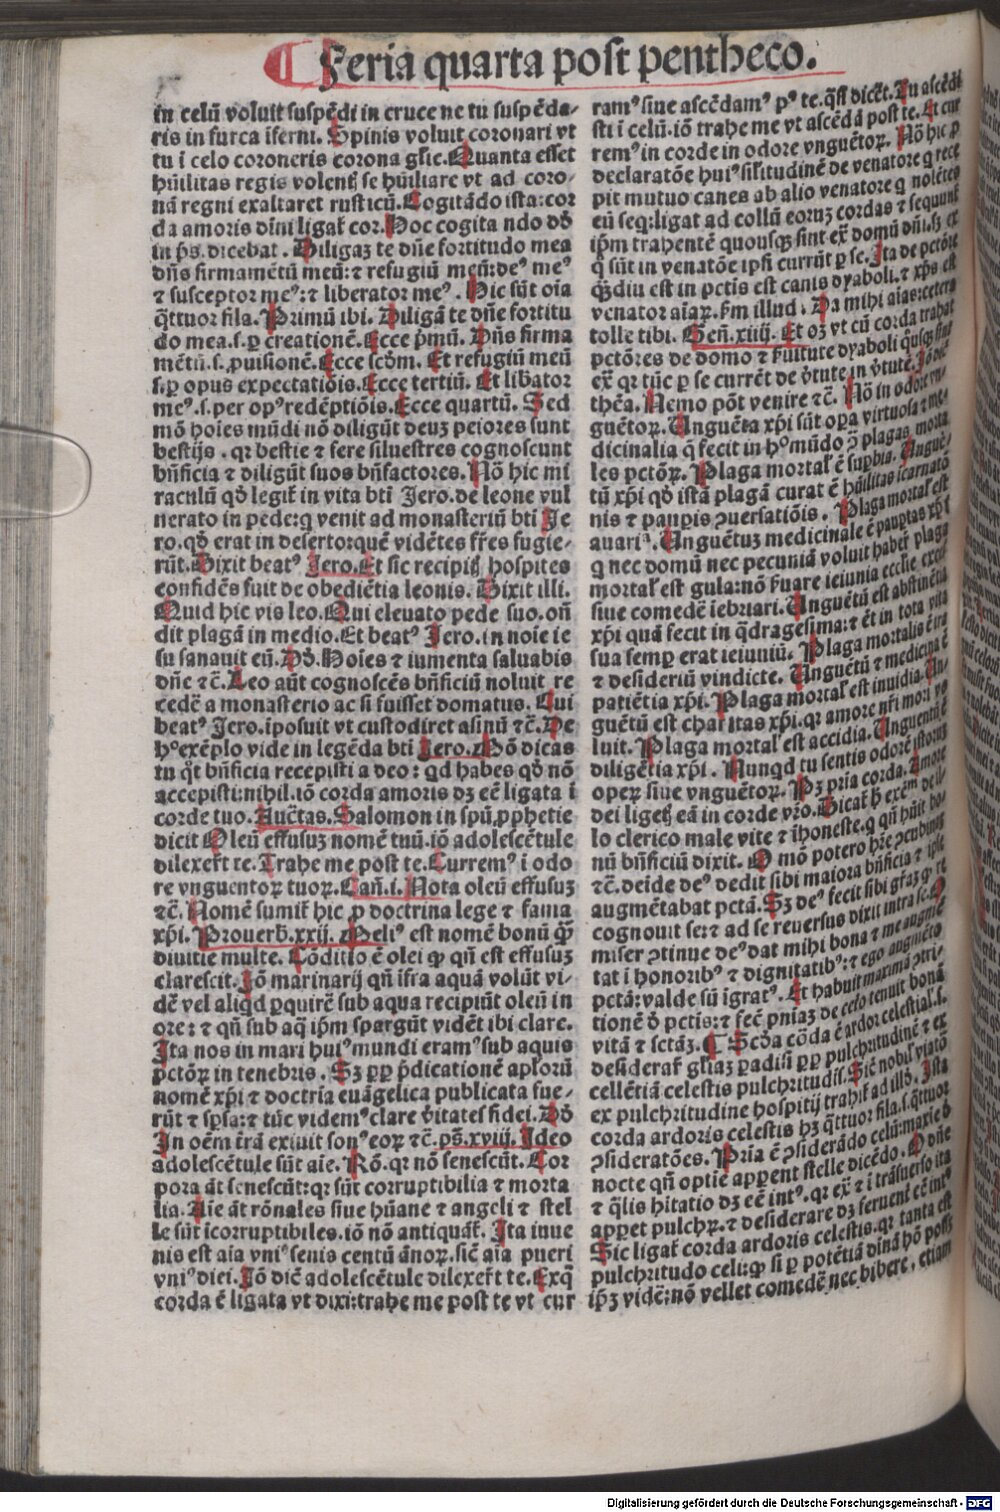 Feria quarta post pentheco.
in celū voluit suspēdi in cruce ne tu suspēda-
ris in furca īferni. Spinis voluit coronari vt
tu ī celo coroneris corona gl̄ie. Quanta esset
hūilitas regis volentꝭ se hūiliare vt ad coro-
nā regni exaltaret rusticū. Cogitādo ista: cor
da amoris dīni ligat̄ cor. Hoc cogita ndo dd̄
in pˢ. dicebat. Diligaꝫ te dn̄e fortitudo mea
dn̄s firmamētū meū: ⁊ refugiū meū: deꝰ meꝰ
⁊ susceptor meꝰ: ⁊ liberator meꝰ. Hic sūt oīa
q̄ttuor fila. Primū ibi. Diligā te dn̄e fortitu
do mea. s. ꝑ creationē. Ecce p̄mū. Dn̄s firma
mētū. s. ꝓuisionē. Ecce scd̄m. Et refugiū meū
s. ꝑ opus expectatiōis. Ecce tertiū. Et libator
meꝰ. s. per opꝰ redēptiōis. Ecce quartū. Sed
mō hoīes mūdi nō diligūt deuꝫ peiores sunt
bestijs. qꝛ bestie ⁊ fere siluestres cognoscunt
bn̄ficia ⁊ diligūt suos bn̄factores. Nō hic mi
raculū qd̄ legit̄ in vita bti Jero. de leone vul
nerato in pede: q venit ad monasteriū bti Je
ro. qd̄ erat in deserto: quē vidētes fr̄es fugie-
rūt. Dixit beatꝰ Jero. Et sic recipitꝭ hospites
confidēs fuit de obediētia leonis. Dixit illi.
Quid hic vis leo. Qui eleuato pede suo. on̄
dit plagā in medio. Et beatꝰ Jero. in noīe ie
su sanauit eū. Dd̄. Hoīes ⁊ iumenta saluabis
dn̄e ⁊c̄. Leo aūt cognoscēs bn̄ficiū noluit re
cedē a monasterio ac si fuisset domatus. Cui
beatꝰ Jero. īposuit vt custodiret asinū ⁊c̄. De
hꝰ exēplo vide in legēda bti Jero. Nō dicas
tu qt̄ bn̄ficia recepisti a deo: qd habes qd̄ nō
accepisti: nihil. iō corda amoris dꝫ eē ligata ī
corde tuo. Auct̄as. Salomon in spū ꝓphetie
dicit Oleū effusuꝫ nomē tuū. iō adolescētule
dilexer̄t te. Trahe me post te. Curremꝰ i odo
re vnguentoꝝ tuoꝝ. Can̄. i. Nota oleū effusuꝫ
⁊c̄. Nomē sumit̄ hic ꝓ doctrina lege ⁊ fama
xp̄i. Prouerb. xxij. Meliꝰ est nomē bonū q̄ꝫ
diuitie multe. Cōditio ē olei ꝙ qn̄ est effusuꝫ
clarescit. Iō marinarij qn̄ īfra aquā volūt vi-
dē vel aliqd ꝑquirē sub aqua recipiūt oleū in
ore: ⁊ qn̄ sub aq̄ ip̄m spargūt vidēt ibi clare.
Ita nos in mari huiꝰ mundi eramꝰ sub aquis
pctōꝝ in tenebris. Sꝫ ꝓpꝑ p̄dicationē apl̄orū
nomē xp̄i ⁊ doctria euāgelica publicata fue-
rūt ⁊ spsa: ⁊ tūc videmꝰ clare v̄itates fidei. Dd̄
In oēm trā exiuit sonꝰ eoꝝ ⁊c̄. ps̄. xviij. Ideo
adolescētule sūt aīe. Rō. qꝛ nō senescūt. Cor
pora āt senescūt: qꝛ sūt corruptibilia ⁊ morta
lia. Aīe āt rōnales siue hūane ⁊ angeli ⁊ stel
le sūt īcorruptibiles. iō nō antiquāt̄. Ita iuue
nis est aīa vniꝰ senis centū ānoꝝ. sic̄ aīa pueri
vniꝰ diei. Iō dic̄ adolescētule dilexer̄t te. Exq̄
corda ē ligata vt dixi: trahe me post te vt cur
ramꝰ siue ascēdamꝰ pꝰ te. qs̄i dicēt. Tu ascēdi
sti i celū. iō trahe me vt ascēdā post te. Et cur
remꝰ in corde in odore vnguētoꝝ. Nō hic ꝓ
declaratōe huiꝰ sil̄itudinē de venatore q rece
pit mutuo canes ab alio venatore q nolētes
eū seq: ligat ad collū eoruꝫ cordas ⁊ sequunt̄
ip̄m trahentē quousqꝫ sint ex̄ domū dn̄i. sꝫ ex
q̄ sūt in venatōe ipsi currūt ꝑ se. Ita de pctōre
q̄ꝫdiu est in pctis est canis dyaboli. ⁊ xp̄s est
venator aīaꝝ. ꝑm illud. Da mihi aīas: cetera
tolle tibi. Gen̄. xiiij. Et oꝫ vt cū corda trahat
pctōres de domo ⁊ ꝑuitute dyaboli
ex̄ qꝛ tūc ꝑ se currēt de v̄tute in v̄tutē.
thēa. Nemo pōt venire ⁊c̄. Nō in odore vn-
guētoꝝ. Unguēta xp̄i sūt opa virtuosa ⁊ me-
dicinalia q̄ fecit in hꝰ mūdo ꝯ̄ plagas morta
les pctōꝝ. Plaga mortal̄ ē supbia. Unguē-
tū xp̄i qd̄ istā plagā curat ē hūilitas īcarnatō
nis ⁊ paupis ꝯuersatiōis. Plaga mortal̄ est
auariᵃ. Unguētuꝫ medicinale ē paup̄tas xp̄i
q nec domū nec pecuniā voluit haber̄ plaga
mortal̄ est gula: nō ꝑuare ieiunia ecclīe
siue comedē īebriari. Unguētū est abstinētia
xp̄i quā fecit in q̄dragesima: ⁊ ēt in tota vita
sua semꝑ erat ieiuniū. Plaga mortalis ē ira
⁊ desideriū vindicte. Unguētū ⁊ medicina ē
patiētia xp̄i. Plaga mortal̄ est inuidia. Un-
guētū est charitas xp̄i. qꝛ amore nr̄i mori vo
luit. Plaga mortal̄ est accidia. Unguentū ē
diligētia xp̄i. Nunqd tu sentis odorē istoruꝫ
operꝫ siue vnguētoꝝ. Pꝫ pria corda. Amore
dei ligetꝭ eā in corde vr̄o. Dicat̄ h̄ exēm de il-
lo clerico male vite ⁊ īhoneste. q qn̄ hūit bo-
nū bn̄ficiū dixit. O mō potero hr̄e ꝯcubinaꝫ
⁊c̄. deīde deꝰ dedit sibi maiora bn̄ficia ⁊ ip̄e
augmētabat pctā. Sꝫ deꝰ fecit sibi gr̄aꝫ ꝙ re
cognouit se: ⁊ ad se reuersus dixit intra se. O
miser ꝯtinue deꝰ dat mihi bona ⁊ me augmē
tat ī honoribꝰ ⁊ dignitatibꝰ: ⁊ ego augmēto
pctā: valde sū īgratꝰ. Et habuit maximā ꝯtri-
tionē d̄ pctis: ⁊ fec̄ pniaꝫ de celo tenuit bonā
vitā ⁊ sctāꝫ. ¶ Scd̄a cōda ē ardor celestial̄. s.
desiderat̄ gliaꝫ ꝑadisi ꝓpꝑ pulchritudinē ⁊ ex
cellētiā celestis pulchritudīs. Sic̄ nobil̄ viatō
ex pulchritudine hospitij trahit̄ ad illd̄. Ista
corda ardoris celestis hꝫ q̄ttuor fila. s. q̄ttuor
ꝯsideratōes. Pria ē ꝯsiderādo celū: maxīe d̄
nocte qn̄ optīe apꝑent stelle dicēdo. O dn̄e
⁊ q̄lis hitatio dꝫ eē intꝰ. qꝛ ex̄ ⁊ ī trāsuerso ita
appet pulchꝝ. ⁊ desiderare dꝫ feruent̄ eē intꝰ
Sic ligat̄ corda ardoris celestis. qꝛ tanta est
pulchritudo celi: ꝙ si ꝑ potētiā dināhō possꝫ
ip̄ꝫ vidē: nō vellet comedē nec bibere, etiam
Digitalisierung gefördert durch die Deutsche Forschungsgemeinschaft - DFG